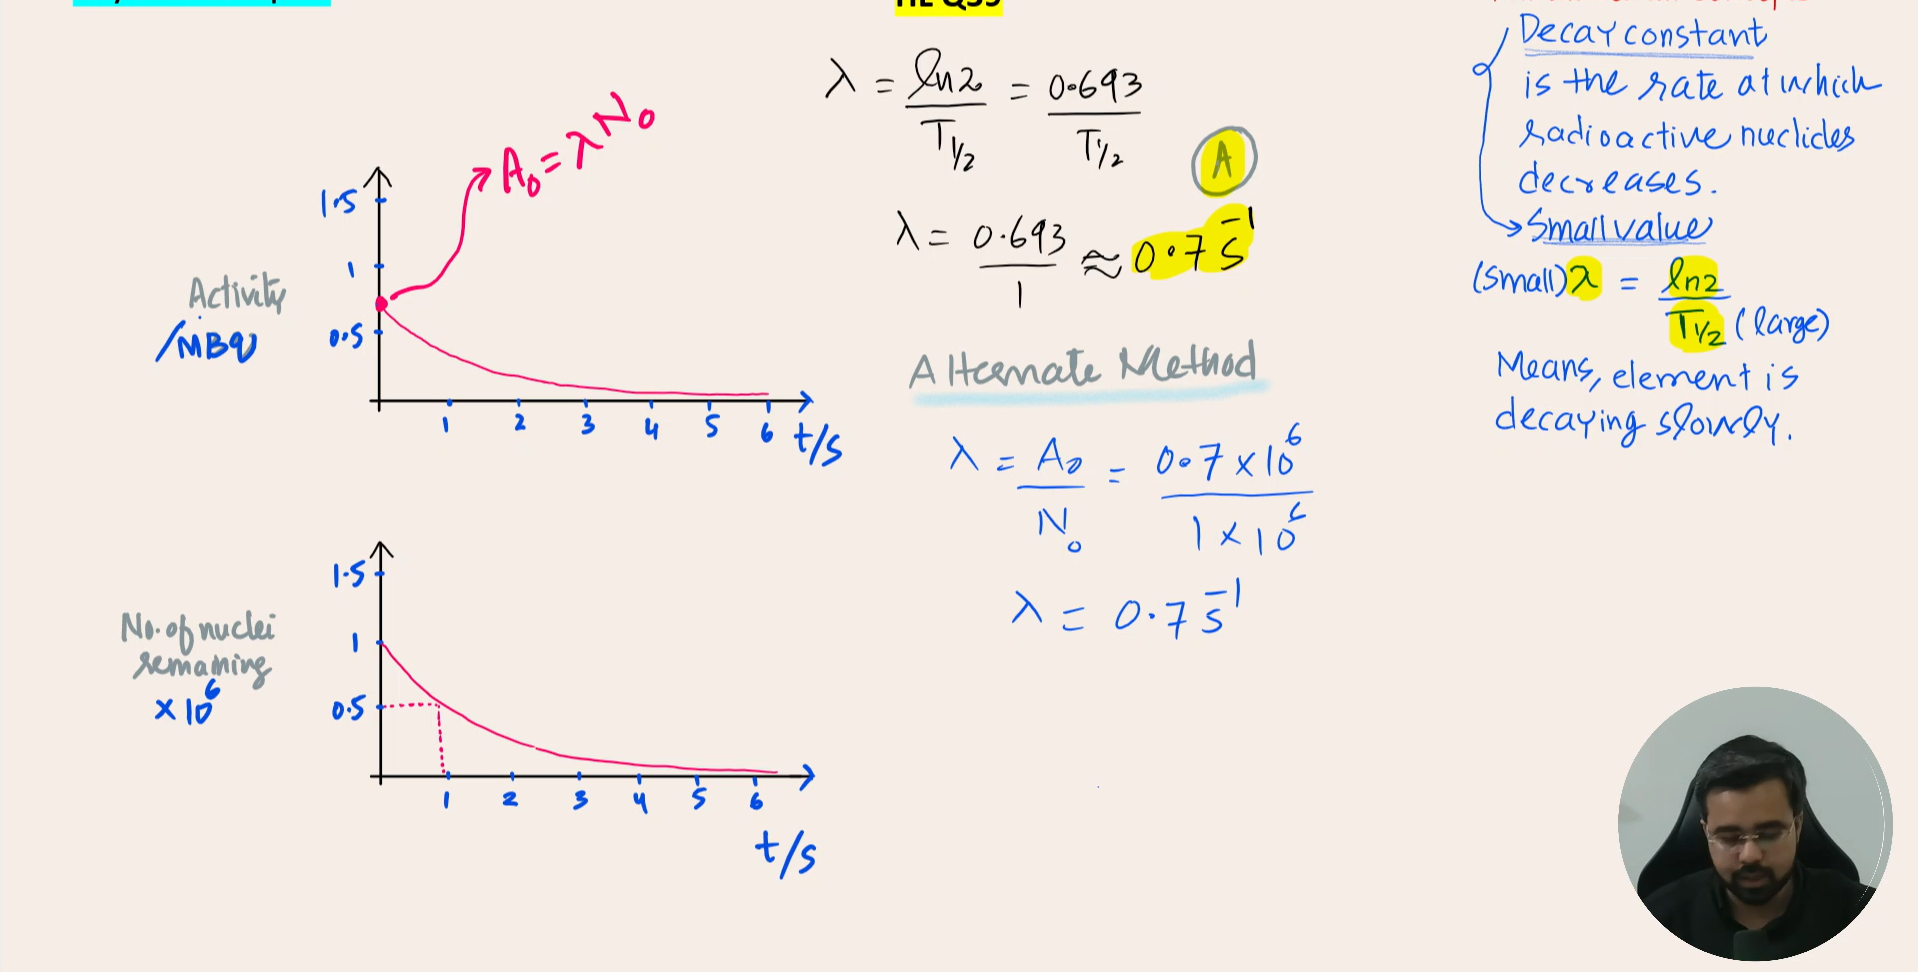 A₀ = λN₀
1.5
1
0.5
Activity
/MBq
1 2 3 4 5 6 t/s
1.5
1
0.5
No. of nuclei
remaining
×10⁶
1 2 3 4 5 6
t/s
λ = ln2/T½ = 0.693/T½
A
λ = 0.693/1 ≈ 0.7 s⁻¹
Alternate Method
λ = A₀/N₀ = 0.7 × 10⁶/1 × 10⁶
λ = 0.7 s⁻¹
Decay constant
is the rate at which
radioactive nuclides
decreases.
→ Small value
(small) λ = ln2/T½ (large)
Means, element is
decaying slowly.